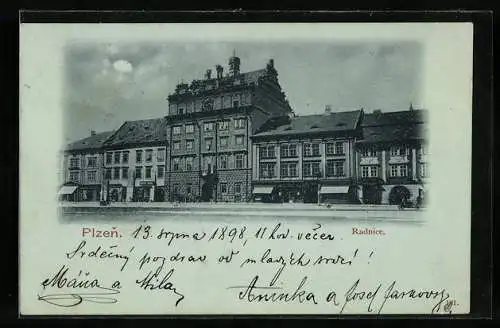 Plzeň. 13. srpna 1898, 11 hod. večer. Radnice.
Srdečný pozdrav od mladých srdcí!
Máňa a Míla Aninka a Josef